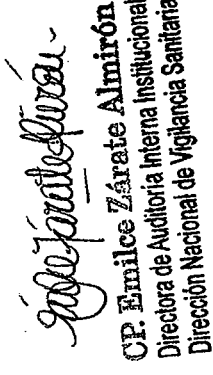 CP. Emilce Zárate Almirón
Directora de Auditoría Interna Institucional
Dirección Nacional de Vigilancia Sanitaria